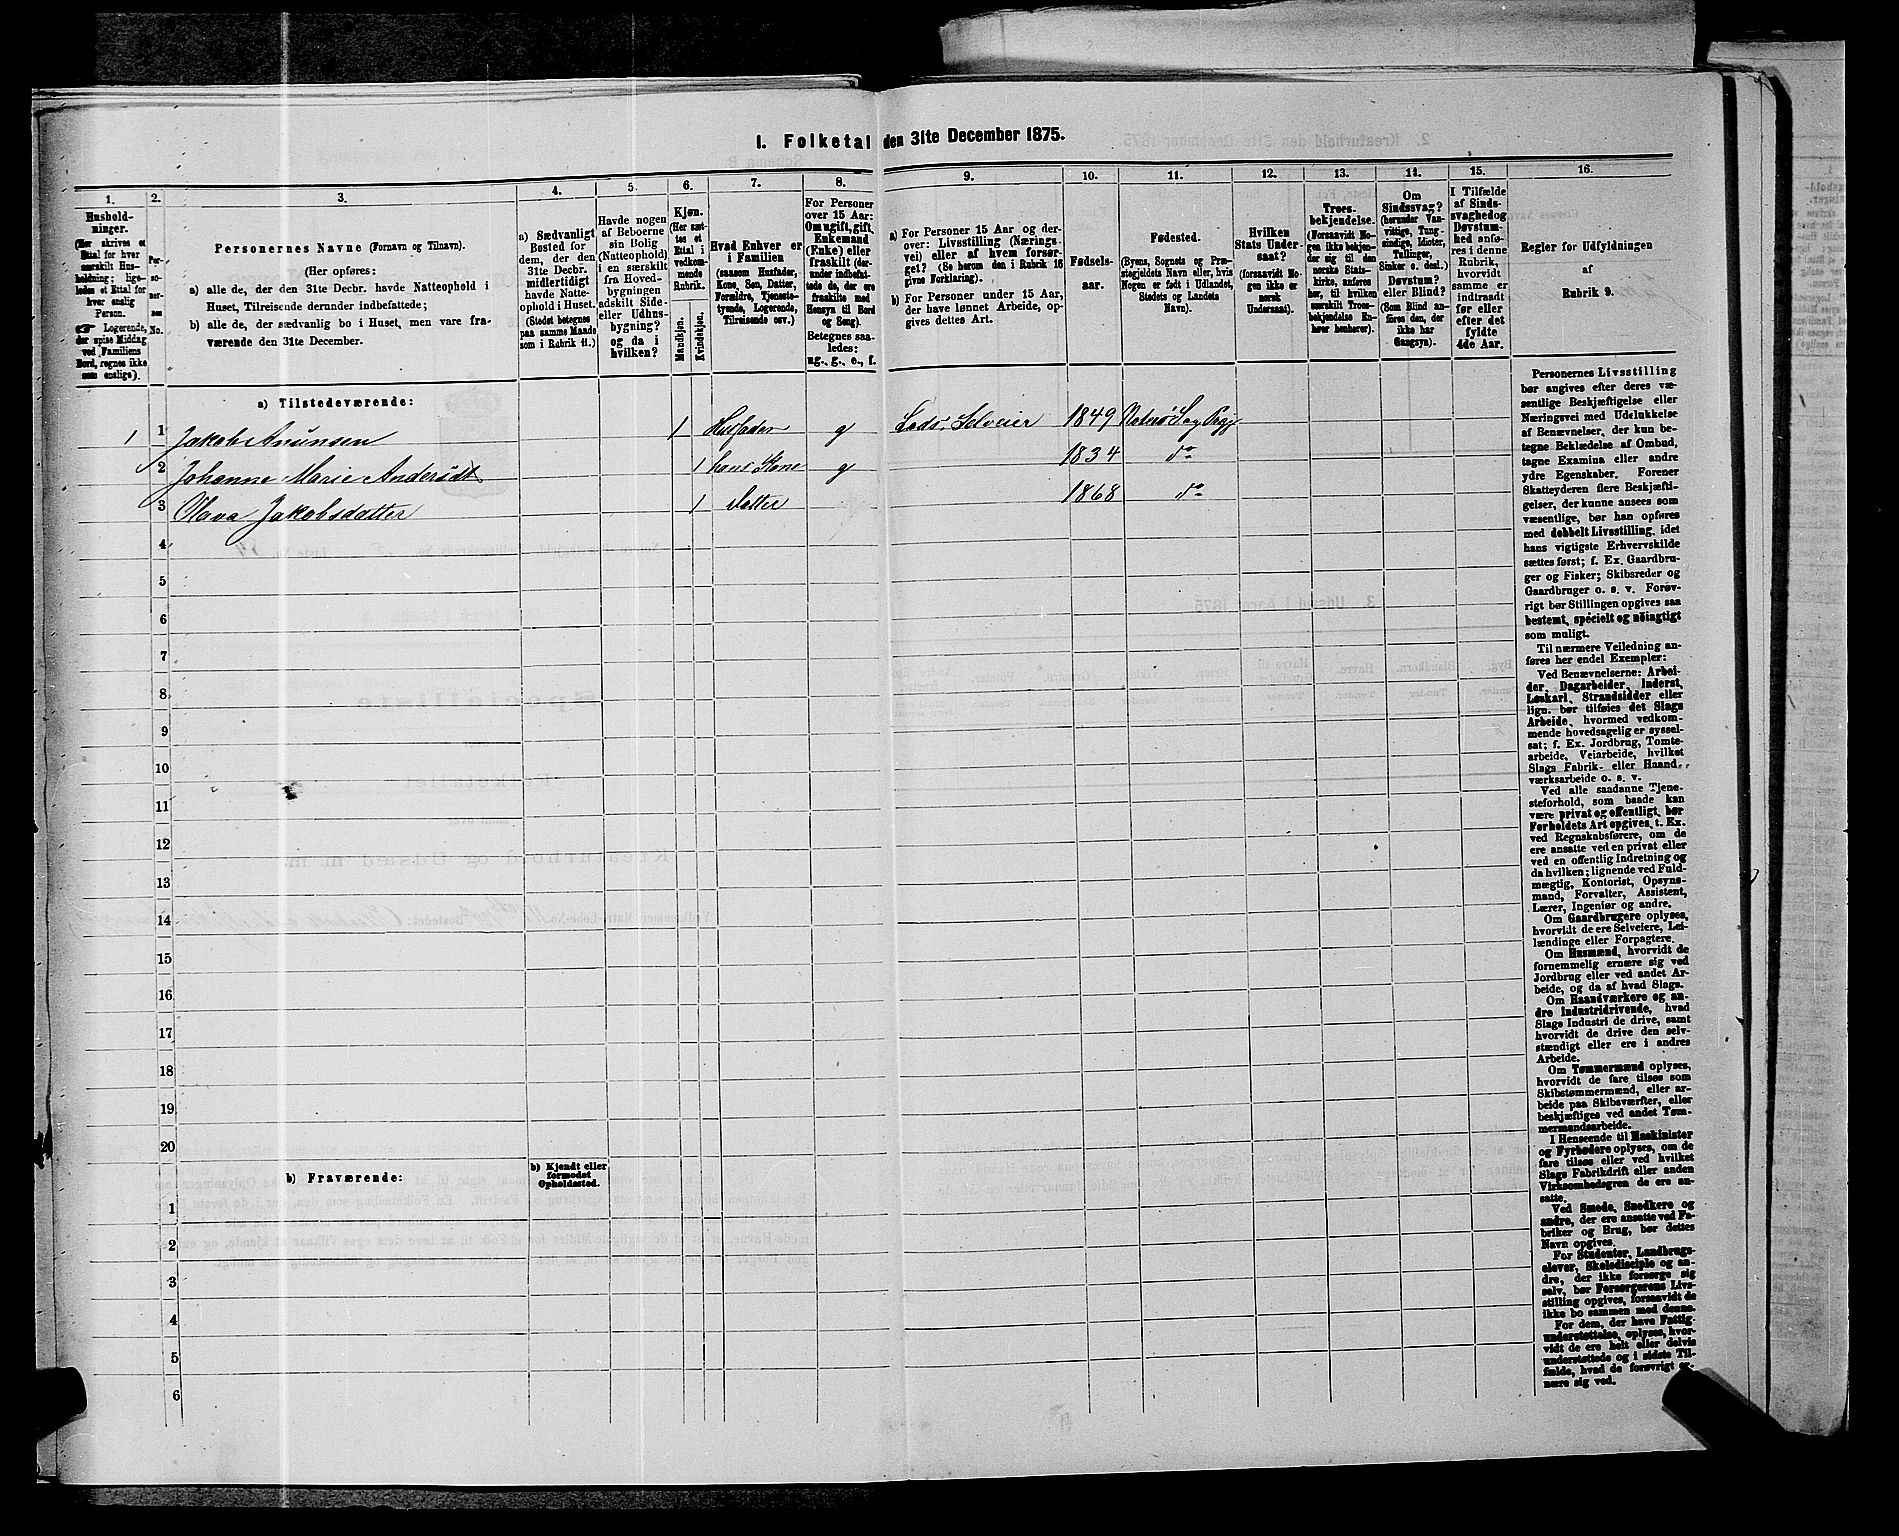 I. Folketal den 31te December 1875.
1.
Hushold-
ninger.
(Her skrives et
Ettal for hver
særskilt Hus-
holdning; lige-
ledes et Ettal for
hver enslig
Person.
☞ Logerende,
der spise Middag
ved Familiens
Bord, regnes ikke
som enslige).
2.
Per-
so-
ner-
nes
No.
3.
Personernes Navne (Fornavn og Tilnavn).
(Her opføres:
a) alle de, der den 31te Decbr. havde Natteophold i
Huset, Tilreisende derunder indbefattede;
b) alle de, der sædvanlig bo i Huset, men vare fra-
værende den 31te December.
4.
a) Sædvanligt
Bosted for
dem, der den
31te Decbr.
midlertidigt
havde Natte-
ophold i Huset.
(Stedet betegnes
paa samme Maade
som i Rubrik 11.)
5.
Havde nogen
af Beboerne
sin Bolig
(Natteophold)
i en særskilt
fra Hoved-
bygningen
adskilt Side-
eller Udhus-
bygning?
og da i
hvilken?
6.
Kjøn.
(Her sæt-
tes et
Ettal i
vedkom-
mende
Rubrik.
Mandkjøn.
Kvindekjøn.
7.
Hvad Enhver er
i Familien
(saasom Husfader,
Kone, Søn, Datter,
Forældre, Tjeneste-
tyende, Logerende,
Tilreisende osv.)
8.
For Personer
over 15 Aar:
Om ugift, gift,
Enkemand
(Enke) eller
fraskilt (der-
under indbefat-
tede de, der ere
fraskilte med
Hensyn til Bord
og Seng).
Betegnes saa-
ledes:
ug., g., e., f.
9.
a) For Personer 15 Aar og der-
over: Livsstilling (Nærings-
vei) eller af hvem forsør-
get? (Se herom den i Rubrik 16
givne Forklaring).
b) For Personer under 15 Aar,
der have lønnet Arbeide, op-
gives dettes Art.
10.
Fødsels-
aar.
11.
Fødested.
(Byens, Sognets og Præ-
stegjeldets Navn eller, hvis
Nogen er født i Udlandet,
Stedets og Landets
Navn).
12.
Hvilken
Stats Under-
saat?
(forsaavidt No-
gen ikke er
norsk
Undersaat).
13.
Troes-
bekjendelse.
(Forsaavidt No-
gen ikke bekjen-
der sig til den
norske Stats-
kirke, anføres
her, til hvilken
særskilt Troes-
bekjendelse En-
hver henhører).
14.
Om
Sindssvag?
(herunder Van-
vittige, Tung-
sindige, Idioter,
Tullinger,
Sinker o. desl.)
Døvstum?
eller Blind?
(Som Blind an-
føres den, der
ikke har
Gangsyn).
15.
I Tilfælde
af Sinds-
svaghed og
Døvstum-
hed anfø-
res i denne
Rubrik,
hvorvidt
samme er
indtraadt
før eller
efter det
fyldte
4de Aar.
16.
Regler for Udfyldningen
af
Rubrik 9.
a) Tilstedeværende:
1 1 Jakob Anunsen 1 Husfader g Lods, Selveier 1849
2 Johanne Marie Andersdt 1 hans Kone g 1834 do
3 Olava Jakobsdatter 1 Datter 1868 do
4
5
6
7
8
9
10
11
12
13
14
15
16
17
18
19
20
b) Fraværende:
b) Kjendt eller
formodet
Opholdssted.
1
2
3
4
5
6
Personernes Livsstilling
bør angives efter deres væ-
sentlige Beskjæftigelse eller
Næringsvei med Udelukkelse
af Benævnelser, der kun be-
tegne Beklædelse af Ombud,
tagne Examina eller andre
ydre Egenskaber. Forener
Skatteyderen flere Beskjæfti-
gelser, der kunne ansees som
væsentlige, bør han opføres
med dobbelt Livsstilling, idet
hans vigtigste Erhvervskilde
sættes først; f. Ex. Gaardbru-
ger og Fisker; Skibsreder og
Gaardbruger o. s. v. Forøv-
rigt bør Stillingen opgives saa
bestemt, specielt og nöiagtigt
som muligt.
Til nærmere Veiledning an-
føres her endel Exempler:
Ved Benævnelserne: Arbei-
der, Dagarbeider, Inderst,
Løskarl, Strandsidder eller
lign. bør tilføies det Slags
Arbeide, hvormed vedkom-
mende hovedsagelig er syssel-
sat; f. Ex. Jordbrug, Tomte-
arbeide, Veiarbeide, hvilket
Slags Fabrik- eller Haand-
værksarbeide o. s. v.
Ved alle saadanne Tjene-
steforhold, som baade kan
være privat og offentligt, bør
Forholdets Art opgives, t. Ex.
ved Regnskabsførere, om de
ere ansatte ved en privat eller
ved en offentlig Indretning og
da hvilken; lignende ved Fuld-
mægtig, Kontorist, Opsyns-
mand, Forvalter, Assistent,
Lærer, Ingeniør og andre.
Om Gaardbrugere oplyses,
hvorvidt de ere Selveiere, Lei-
lændinge eller Forpagtere.
Om Husmænd, hvorvidt de
fornemmelig ernære sig ved
Jordbrug eller ved andet Ar-
beide, og da af hvad Slags.
Om Haandværkere og an-
dre Industridrivende, hvad
Slags Industri de drive, samt
hvorvidt de drive den selv-
stændigt eller ere i andres
Arbeide.
Om Tømmermænd oplyses,
hvorvidt de fare tilsøs som
Skibstømmermænd, eller ar-
beide paa Skibsværfter, eller
beskjæftiges ved andet Tøm-
mermandsarbeide.
I Henseende til Maskinister
og Fyrbødere oplyses, om de
fare tilsøs eller ved hvilket
Slags Fabrikdrift eller anden
Virksomhedsgren de ere an-
satte.
Ved Smede, Snedkere og
andre, der ere ansatte ved Fa-
briker og Brug, bør dettes
Navn opgives.
For Studenter, Landbrugs-
elever, Skoledisciple og an-
dre, der ikke forsørge sig
selv, bør Forsørgerens Livs-
stilling opgives, forsaavidt de
ikke bo sammen med denne.
For dem, der have Fattig-
understøttelse, oplyses, hvor-
vidt de ere helt eller delvis
understøttede og i sidste Til-
fælde, hvad de forøvrigt er-
nære sig ved.